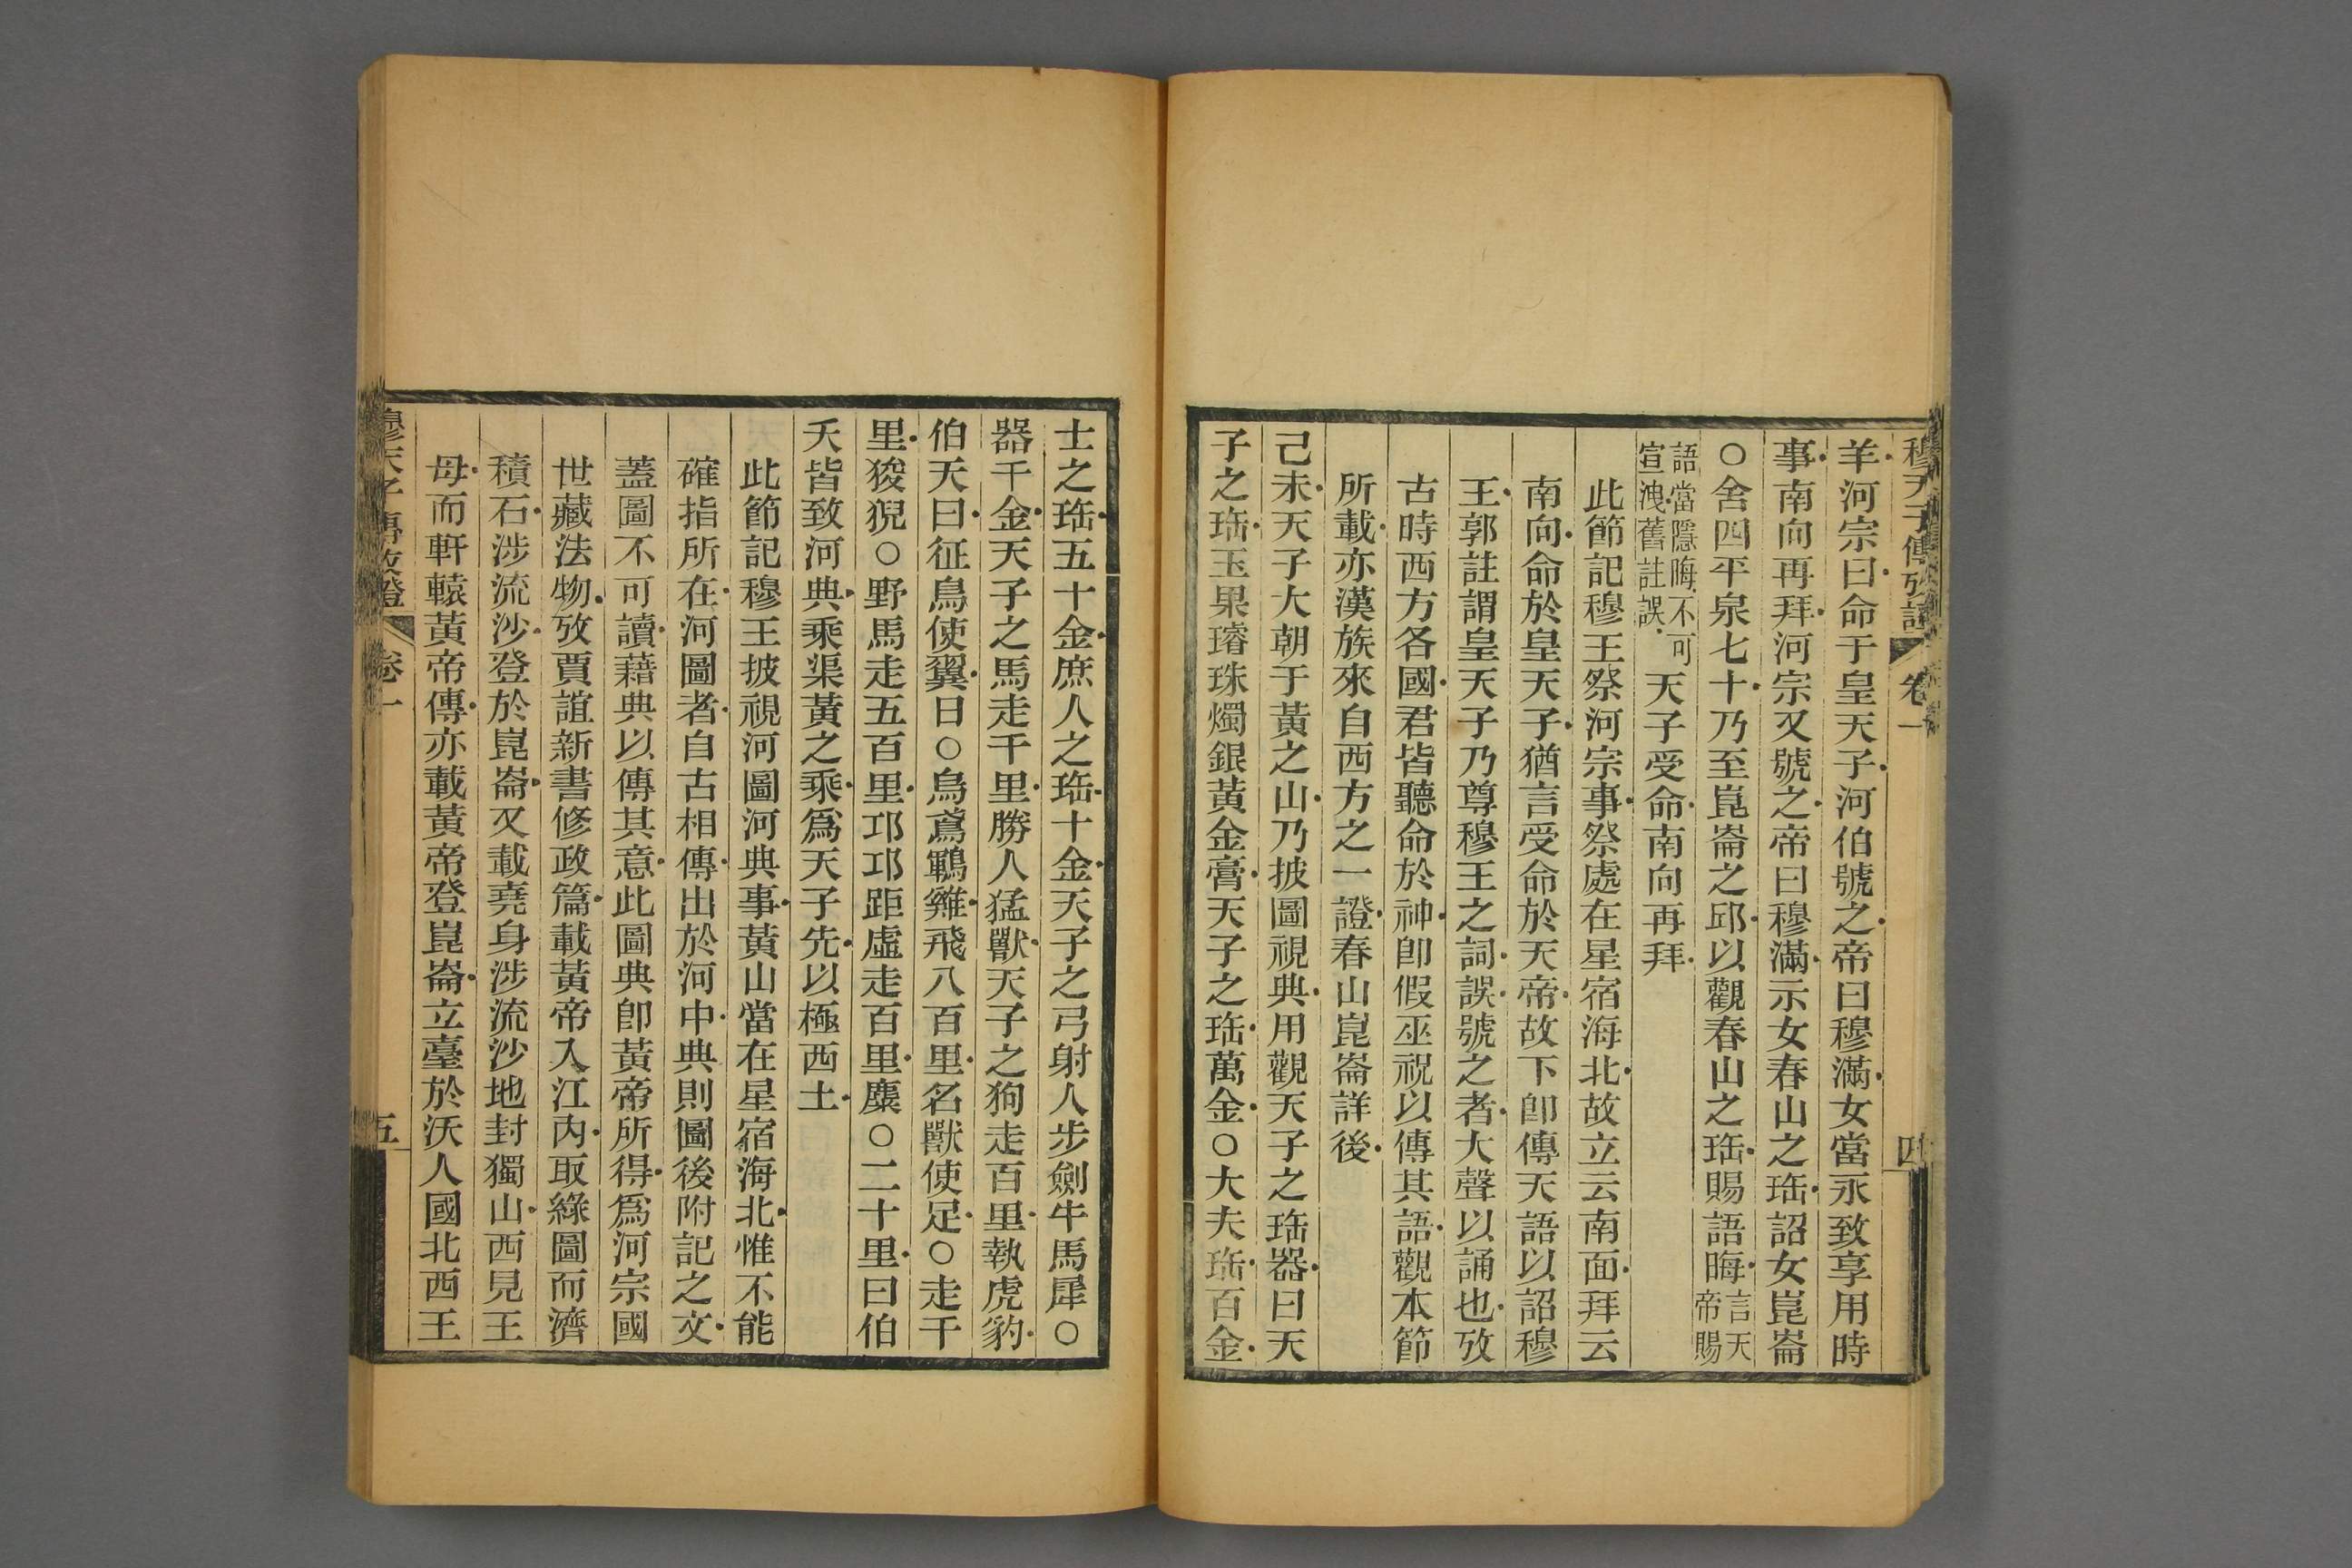 穆天子傳攷證 卷一 四
羊河宗曰命于皇天子河伯號之帝曰穆滿女當永致享用時
事南向再拜河宗又號之帝曰穆滿示女春山之珤詔女崑崙
○舍四平泉七十乃至崑崙之邱以觀春山之珤賜語晦言天帝賜
語當隱晦不可宣洩舊註誤天子受命南向再拜
此節記穆王祭河宗事祭處在星宿海北故立云南面拜云
南向命於皇天子猶言受命於天帝故下卽傳天語以詔穆
王郭註謂皇天子乃尊穆王之詞誤號之者大聲以誦也攷
古時西方各國君皆聽命於神卽假巫祝以傳其語觀本節
所載亦漢族來自西方之一證春山崑崙詳後
己未天子大朝于黃之山乃披圖視典用觀天子之珤器曰天
子之珤玉果璿珠燭銀黃金膏天子之珤萬金○大夫珤百金
士之珤五十金庶人之珤十金天子之弓射人步劍牛馬犀○
器千金天子之馬走千里勝人猛獸天子之狗走百里執虎豹
伯夭曰征鳥使翼曰○烏鳶鸛雞飛八百里名獸使足○走千
里狻猊○野馬走五百里邛邛距虛走百里麋○二十里曰伯
夭皆致河典乘渠黃之乘爲天子先以極西土
此節記穆王披視河圖河典事黃山當在星宿海北惟不能
確指所在河圖者自古相傳出於河中典則圖後附記之文
蓋圖不可讀藉典以傳其意此圖典卽黃帝所得爲河宗國
世藏法物攷賈誼新書修政篇載黃帝入江內取綠圖而濟
積石涉流沙登於崑崙又載堯身涉流沙地封獨山西見王
母而軒轅黃帝傳亦載黃帝登崑崙立臺於沃人國北西王
穆天子傳攷證 卷一 五